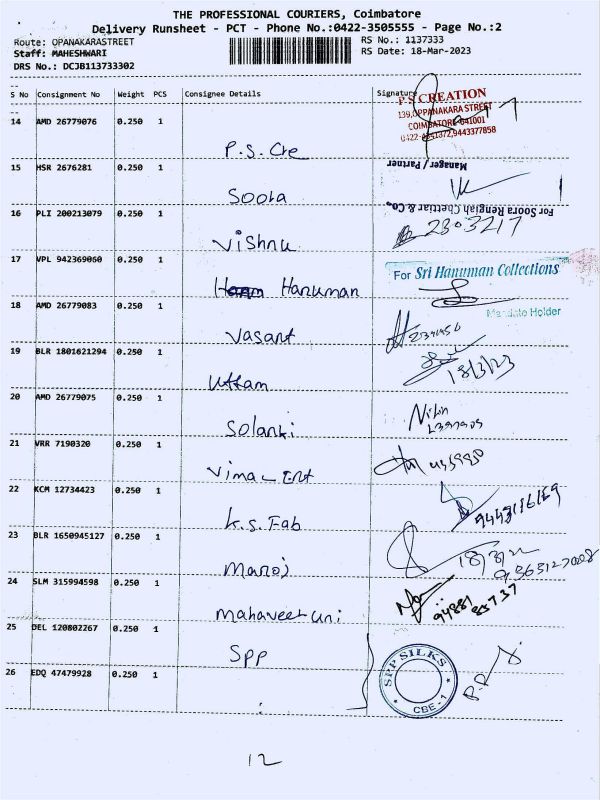 THE PROFESSIONAL COURIERS, Coimbatore
Delivery Runsheet - PCT - Phone No.:0422-3505555 - Page No.:2
Route: OPANAKARASTREET
RS No.: 1137333
Staff: MAHESHWARI
RS Date: 18-Mar-2023
DRS No.: DCJB113733302
S No Consignment No Weight PCS Consignee Details Signature
14 AMD 26779076 0.250 1
P.S. Cre
P S CREATION
139, OPPANAKARA STREET
COIMBATORE-641001
15 HSR 2676281 0.250 1
Soora
Manager / Partner
For Soora Rengiah Chettiar & Co.,
16 PLI 200213079 0.250 1
Vishnu
2303217
17 VPL 942369060 0.250 1
Hanuman
For Sri Hanuman Collections
Mandate Holder
18 AMD 26779083 0.250 1
Vasant
19 BLR 1801621294 0.250 1
Uttam
18/3/23
20 AMD 26779075 0.250 1
Solanki
Nitin
21 VRR 7190320 0.250 1
Vimal Ent
22 KCM 12734423 0.250 1
K.S. Fab
23 BLR 1650945127 0.250 1
Manoj
24 SLM 315994598 0.250 1
Mahaveer uni
94881
83737
25 DEL 120802267 0.250 1
SPP
SPP SILKS
CBE - 1
26 EDQ 47479928 0.250 1
12